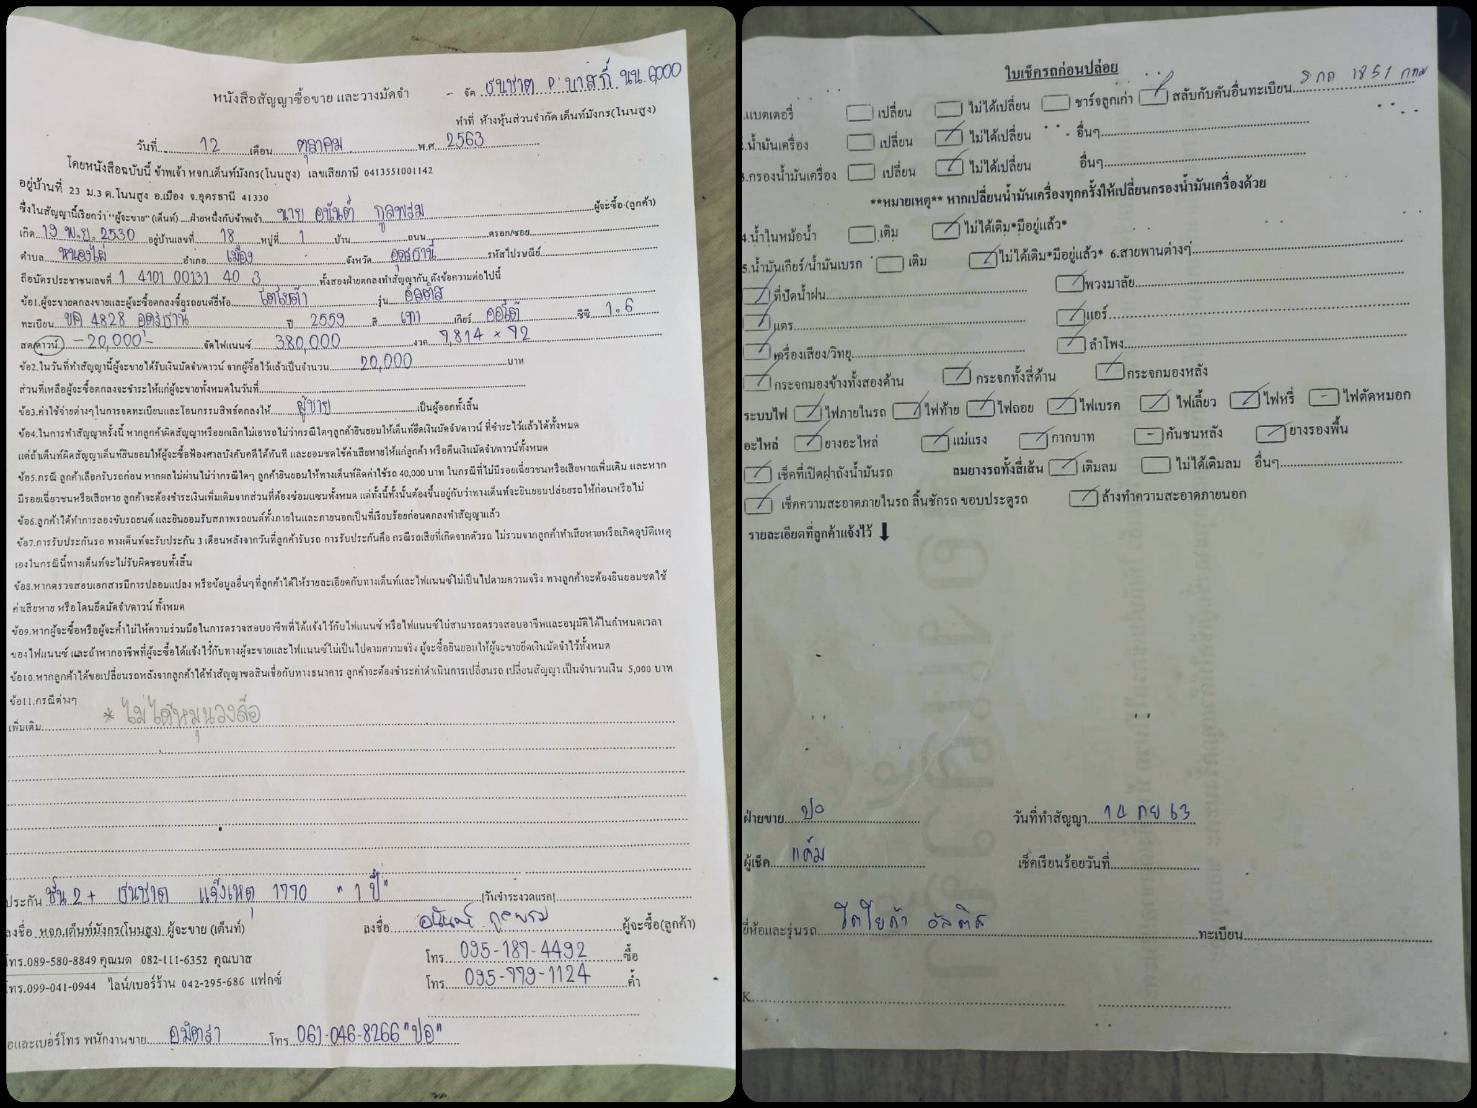 หนังสือสัญญาซื้อขาย และวางมัดจำ
- จัด ธนชาต P' บาสกี้ นน.6000
ทำที่ ห้างหุ้นส่วนจำกัด เต็นท์มังกร(โนนสูง)
วันที่ 12 เดือน ตุลาคม พ.ศ 2563
โดยหนังสือฉบับนี้ ข้าพเจ้า หจก.เต็นท์มังกร(โนนสูง) เลขเสียภาษี 0413551001142
อยู่บ้านที่ 23 ม.3 ต.โนนสูง อ.เมือง จ.อุดรธานี 41330
ซึ่งในสัญญานี้เรียกว่า "ผู้จะขาย" (เต็นท์) ฝ่ายหนึ่งกับข้าพเจ้า นาย อนันต์ กูลพรม ผู้จะซื้อ (ลูกค้า)
เกิด 19 พ.ย. 2530 อยู่บ้านเลขที่ 18 หมู่ที่ 1 บ้าน ถนน ตรอก/ซอย
ตำบล หนองไผ่ อำเภอ เมือง จังหวัด อุดรธานี รหัสไปรษณีย์
ถือบัตรประชาชนเลขที่ 1 4101 00131 40 3 ทั้งสองฝ่ายตกลงทำสัญญากัน ดังข้อความต่อไปนี้
ข้อ1.ผู้จะขายตกลงขายและผู้จะซื้อตกลงซื้อรถยนต์ยี่ห้อ โตโยต้า รุ่น อัลติส
ทะเบียน ขค 4828 อุดรธานี ปี 2559 สี เทา เกียร์ ออโต้ ซีซี 1.6
สด/ดาวน์ -20,000- จัดไฟแนนซ์ 380,000 งวด 7,814 × 72
ข้อ2.ในวันที่ทำสัญญานี้ผู้จะขายได้รับเงินมัดจำ/ดาวน์ จากผู้ซื้อไว้แล้วเป็นจำนวน 20,000 บาท
ส่วนที่เหลือผู้จะซื้อตกลงจะชำระให้แก่ผู้จะขายทั้งหมดในวันที่
ข้อ3.ค่าใช้จ่ายต่างๆในการจดทะเบียนและโอนกรรมสิทธิ์ตกลงให้ ผู้ขาย เป็นผู้ออกทั้งสิ้น
ข้อ4.ในการทำสัญญาครั้งนี้ หากลูกค้าผิดสัญญาหรือยกเลิกไม่เอารถไม่ว่ากรณีใดๆลูกค้ายินยอมให้เต็นท์ยึดเงินมัดจำ/ดาวน์ ที่ชำระไว้แล้วได้ทั้งหมด
แต่ถ้าเต็นท์ผิดสัญญาเต็นท์ยินยอมให้ผู้จะซื้อฟ้องศาลบังคับคดีได้ทันที และยอมชดใช้ค่าเสียหายให้แก่ลูกค้า หรือคืนเงินมัดจำ/ดาวน์ทั้งหมด
ข้อ5.กรณี ลูกค้าเลือกรับรถก่อน หากผลไม่ผ่านไม่ว่ากรณีใดๆ ลูกค้ายินยอมให้ทางเต็นท์คิดค่าใช้รถ 40,000 บาท ในกรณีที่ไม่มีรอยเฉี่ยวชนหรือเสียหายเพิ่มเติม และหาก
มีรอยเฉี่ยวชนหรือเสียหาย ลูกค้าจะต้องชำระเงินเพิ่มเติมจากส่วนที่ต้องซ่อมแซมทั้งหมด แต่ทั้งนี้ทั้งนั้นต้องขึ้นอยู่กับว่าทางเต็นท์จะยินยอมปล่อยรถให้ก่อนหรือไม่
ข้อ6.ลูกค้าได้ทำการลองขับรถยนต์ และยินยอมรับสภาพรถยนต์ทั้งภายในและภายนอกเป็นที่เรียบร้อยก่อนตกลงทำสัญญาแล้ว
ข้อ7.การรับประกันรถ ทางเต็นท์จะรับประกัน 3 เดือนหลังจากวันที่ลูกค้ารับรถ การรับประกันคือ กรณีรถเสียที่เกิดจากตัวรถ ไม่รวมจากลูกค้าทำเสียหายหรือเกิดอุบัติเหตุ
เองในกรณีนี้ทางเต็นท์จะไม่รับผิดชอบทั้งสิ้น
ข้อ8.หากตรวจสอบเอกสารมีการปลอมแปลง หรือข้อมูลอื่นๆที่ลูกค้าได้ให้รายละเอียดกับทางเต็นท์และไฟแนนซ์ไม่เป็นไปตามความจริง ทางลูกค้าจะต้องยินยอมชดใช้
ค่าเสียหาย หรือโดนยึดมัดจำ/ดาวน์ ทั้งหมด
ข้อ9.หากผู้จะซื้อหรือผู้จะค้ำไม่ให้ความร่วมมือในการตรวจสอบอาชีพที่ได้แจ้งไว้กับไฟแนนซ์ หรือไฟแนนซ์ไม่สามารถตรวจสอบอาชีพและอนุมัติได้ในกำหนดเวลา
ของไฟแนนซ์ และถ้าหากอาชีพที่ผู้จะซื้อได้แจ้งไว้กับทางผู้จะขายและไฟแนนซ์ไม่เป็นไปตามความจริง ผู้จะซื้อยินยอมให้ผู้จะขายยึดเงินมัดจำไว้ทั้งหมด
ข้อ10.หากลูกค้าได้ขอเปลี่ยนรถหลังจากลูกค้าได้ทำสัญญาขอสินเชื่อกับทางธนาคาร ลูกค้าจะต้องชำระค่าดำเนินการเปลี่ยนรถ เปลี่ยนสัญญา เป็นจำนวนเงิน 5,000 บาท
ข้อ11.กรณีต่างๆ
เพิ่มเติม * ไม่ได้หมุนวงล้อ
ประกัน ชั้น 2+ ธนชาต แจ้งเหตุ 1770 "1 ปี" (วันชำระงวดแรก)
ลงชื่อ หจก.เต็นท์มังกร(โนนสูง) ผู้จะขาย (เต็นท์) ลงชื่อ อนันต์ กูลพรม ผู้จะซื้อ(ลูกค้า)
โทร.089-580-8849 คุณมด 082-111-6352 คุณบาส โทร. 095-187-4492 ซื้อ
โทร.099-041-0944 ไลน์/เบอร์ร้าน 042-295-686 แฟกซ์ โทร. 095-779-1124 ค้ำ
อและเบอร์โทร พนักงานขาย อมิตรา โทร. 061-046-8266 "ปอ"
ใบเช็ครถก่อนปล่อย
.แบตเตอรี่ เปลี่ยน ไม่ได้เปลี่ยน ชาร์จลูกเก่า สลับกับคันอื่นทะเบียน 5 กถ 1851 กทม
.น้ำมันเครื่อง เปลี่ยน ไม่ได้เปลี่ยน อื่นๆ
3.กรองน้ำมันเครื่อง เปลี่ยน ไม่ได้เปลี่ยน อื่นๆ
**หมายเหตุ** หากเปลี่ยนน้ำมันเครื่องทุกครั้งให้เปลี่ยนกรองน้ำมันเครื่องด้วย
4.น้ำในหม้อน้ำ เติม ไม่ได้เติม*มีอยู่แล้ว*
5.น้ำมันเกียร์/น้ำมันเบรค เติม ไม่ได้เติม*มีอยู่แล้ว* 6.สายพานต่างๆ
ที่ปัดน้ำฝน พวงมาลัย
แตร แอร์
เครื่องเสียง/วิทยุ ลำโพง
กระจกมองข้างทั้งสองด้าน กระจกทั้งสี่ด้าน กระจกมองหลัง
ระบบไฟ ไฟภายในรถ ไฟท้าย ไฟถอย ไฟเบรค ไฟเลี้ยว ไฟหรี่ ไฟตัดหมอก
อะไหล่ ยางอะไหล่ แม่แรง กากบาท กันชนหลัง ยางรองพื้น
เช็คที่เปิดฝาถังน้ำมันรถ ลมยางรถทั้งสี่เส้น เติมลม ไม่ได้เติมลม อื่นๆ
เช็คความสะอาดภายในรถ ลิ้นชักรถ ขอบประตูรถ ล้างทำความสะอาดภายนอก
รายละเอียดที่ลูกค้าแจ้งไว้
ฝ่ายขาย ปอ วันที่ทำสัญญา 14 กย 63
ผู้เช็ค แต้ม เช็คเรียบร้อยวันที่
ยี่ห้อและรุ่นรถ โตโยต้า อัลติส ทะเบียน
K.